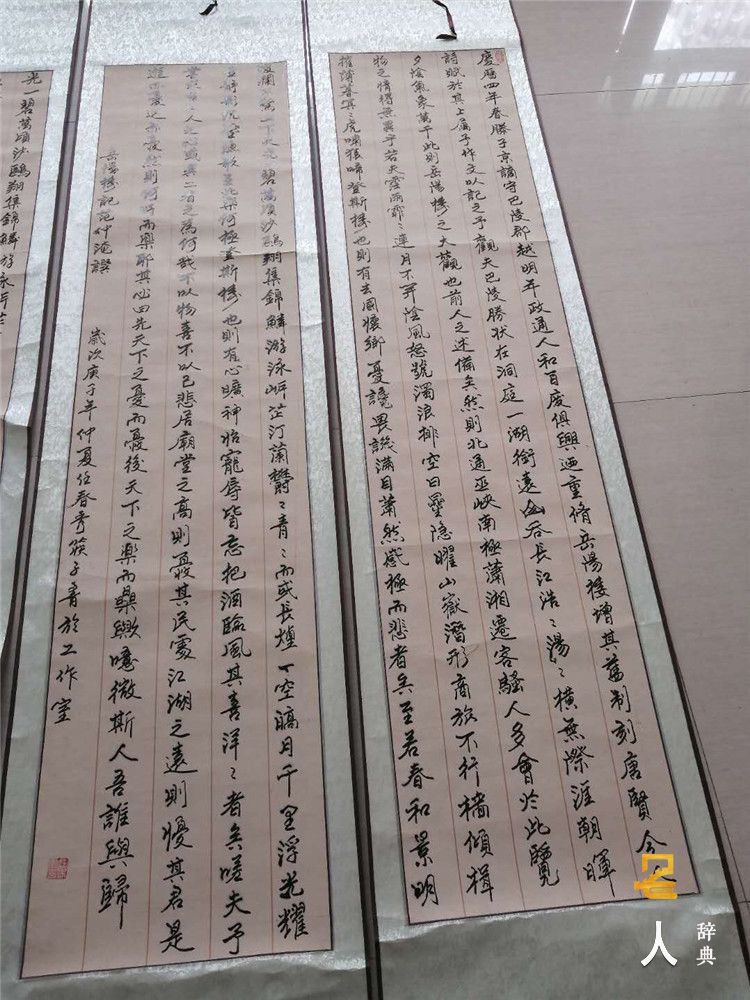 慶曆四年春滕子京謫守巴陵郡越明年政通人和百廢俱興迺重脩岳陽樓增其舊制刻唐賢今人
詩賦於其上屬予作文以記之予觀夫巴陵勝狀在洞庭一湖銜遠山吞長江浩〻湯〻橫無際涯朝暉
夕陰氣象萬千此則岳陽樓之大觀也前人之述備矣然則北通巫峽南極瀟湘遷客騷人多會於此覽
物之情得無異乎若夫霪雨霏〻連月不開陰風怒號濁浪排空日星隱曜山嶽潛形商旅不行檣傾楫
摧薄暮冥〻虎嘯猿啼登斯樓也則有去國懷鄉憂讒畏譏滿目蕭然感極而悲者矣至若春和景明
波瀾不驚上下天光一碧萬頃沙鷗翔集錦鱗游泳岸芷汀蘭鬱〻青〻而或長煙一空皓月千里浮光耀
金靜影沉璧漁歌互答此樂何極登斯樓也則有心曠神怡寵辱皆忘把酒臨風其喜洋〻者矣嗟夫予
嘗求古仁人之心或異二者之為何哉不以物喜不以己悲居廟堂之高則憂其民處江湖之遠則憂其君是
進亦憂退亦憂然則何時而樂耶其心曰先天下之憂而憂後天下之樂而樂歟噫微斯人吾誰與歸
岳陽樓記范仲淹譔
歲次庚子年仲夏任春秀筱子青於工作室
光一碧萬頃沙鷗翔集錦鱗游泳岸芷
名人辞典